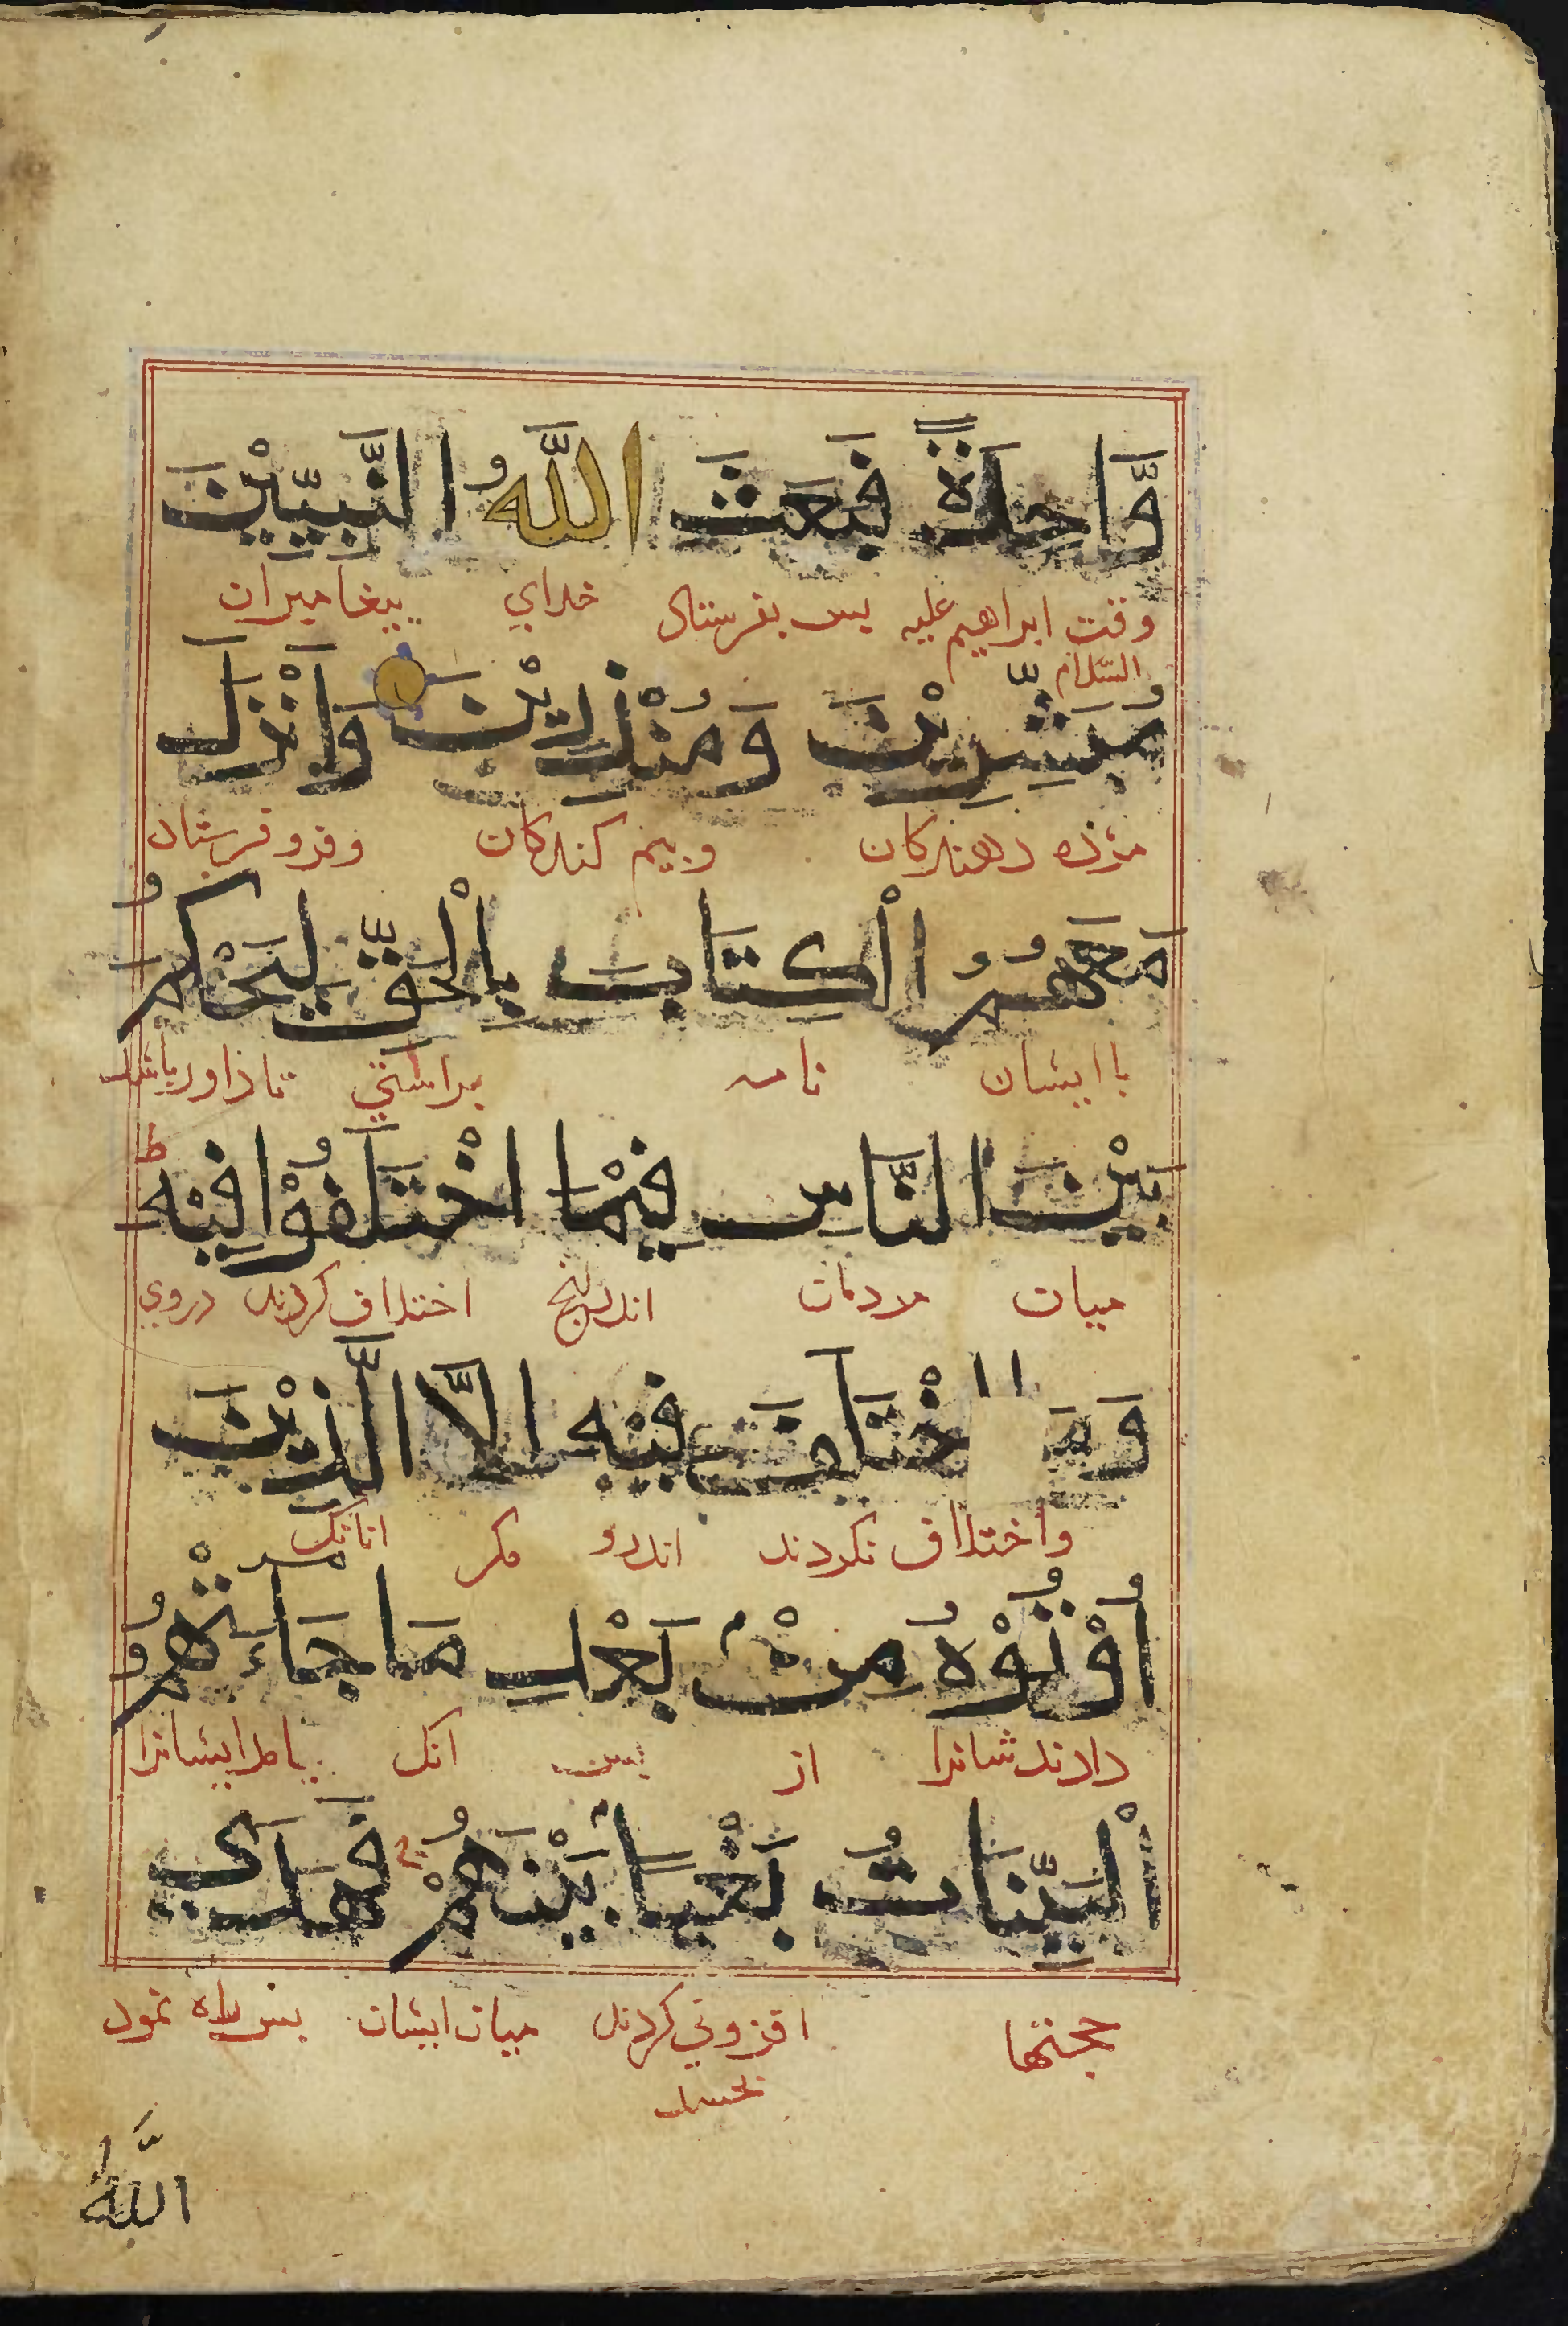 وَّاحِدَةً فَبَعَثَ اللَّهُ النَّبِيّٖنَ
وقت ابراهیم علیه بس بفرستاد خدای پیغامبران
السّلام
مُبَشِّرِيْنَ وَمُنْذِرِيْنَ وَاَنْزَلَ
مژده دهندکان وبیم کنندکان وفرو فرستاد
مَعَهُمُ الْكِتَابَ بِالْحَقِّ لِيَحْكُمَ
باایشان نامه براستی تا داور باشد
بَيْنَ النَّاسِ فِيْمَا اخْتَلَفُوْا فِيْهِ ط
میان مردمان اندرانج اختلاف کردند دروی
وَمَا اخْتَلَفَ فِيْهِ اِلَّا الَّذِيْنَ
واختلاف نکردند اندرو مکر انانک
اُوْتُوْهُ مِنْ بَعْدِ مَا جَاءَتْهُمُ
دادندشانرا از بس انک بامدایشانرا
الْبَيِّنَاتُ بَغْيًا بَيْنَهُمْ فَهَدَى
حجتها افزونی کردند میان ایشان بس راه نمود
بحسد
اللَّهُ